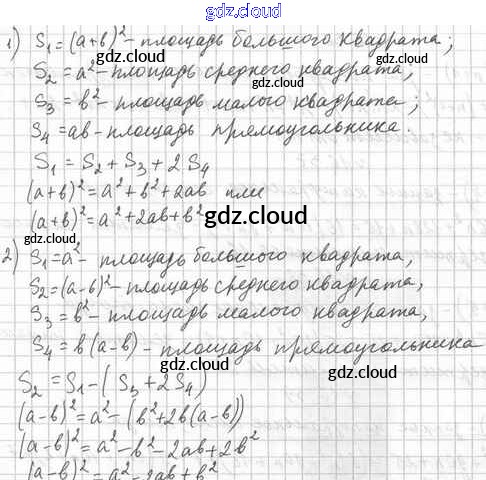 gdz.cloud
1) S₁ = (a+b)² - площадь большого квадрата;
gdz.cloud
S₂ = a² - площадь среднего квадрата,
gdz.cloud
S₃ = b² - площадь малого квадрата;
S₄ = ab - площадь прямоугольника.
gdz.cloud
S₁ = S₂ + S₃ + 2S₄
(a+b)² = a² + b² + 2ab или
gdz.cloud
(a+b)² = a² + 2ab + b²
gdz.cloud
gdz.cloud
2) S₁ = a² - площадь большого квадрата,
gdz.cloud
S₂ = (a-b)² - площадь среднего квадрата,
S₃ = b² - площадь малого квадрата,
gdz.cloud
S₄ = b(a-b) - площадь прямоугольника
S₂ = S₁ - (S₃ + 2S₄)
gdz.cloud
gdz.cloud
(a-b)² = a² - (b² + 2b(a-b))
(a-b)² = a² - b² - 2ab + 2b²
gdz.cloud
(a-b)² = a² - 2ab + b²